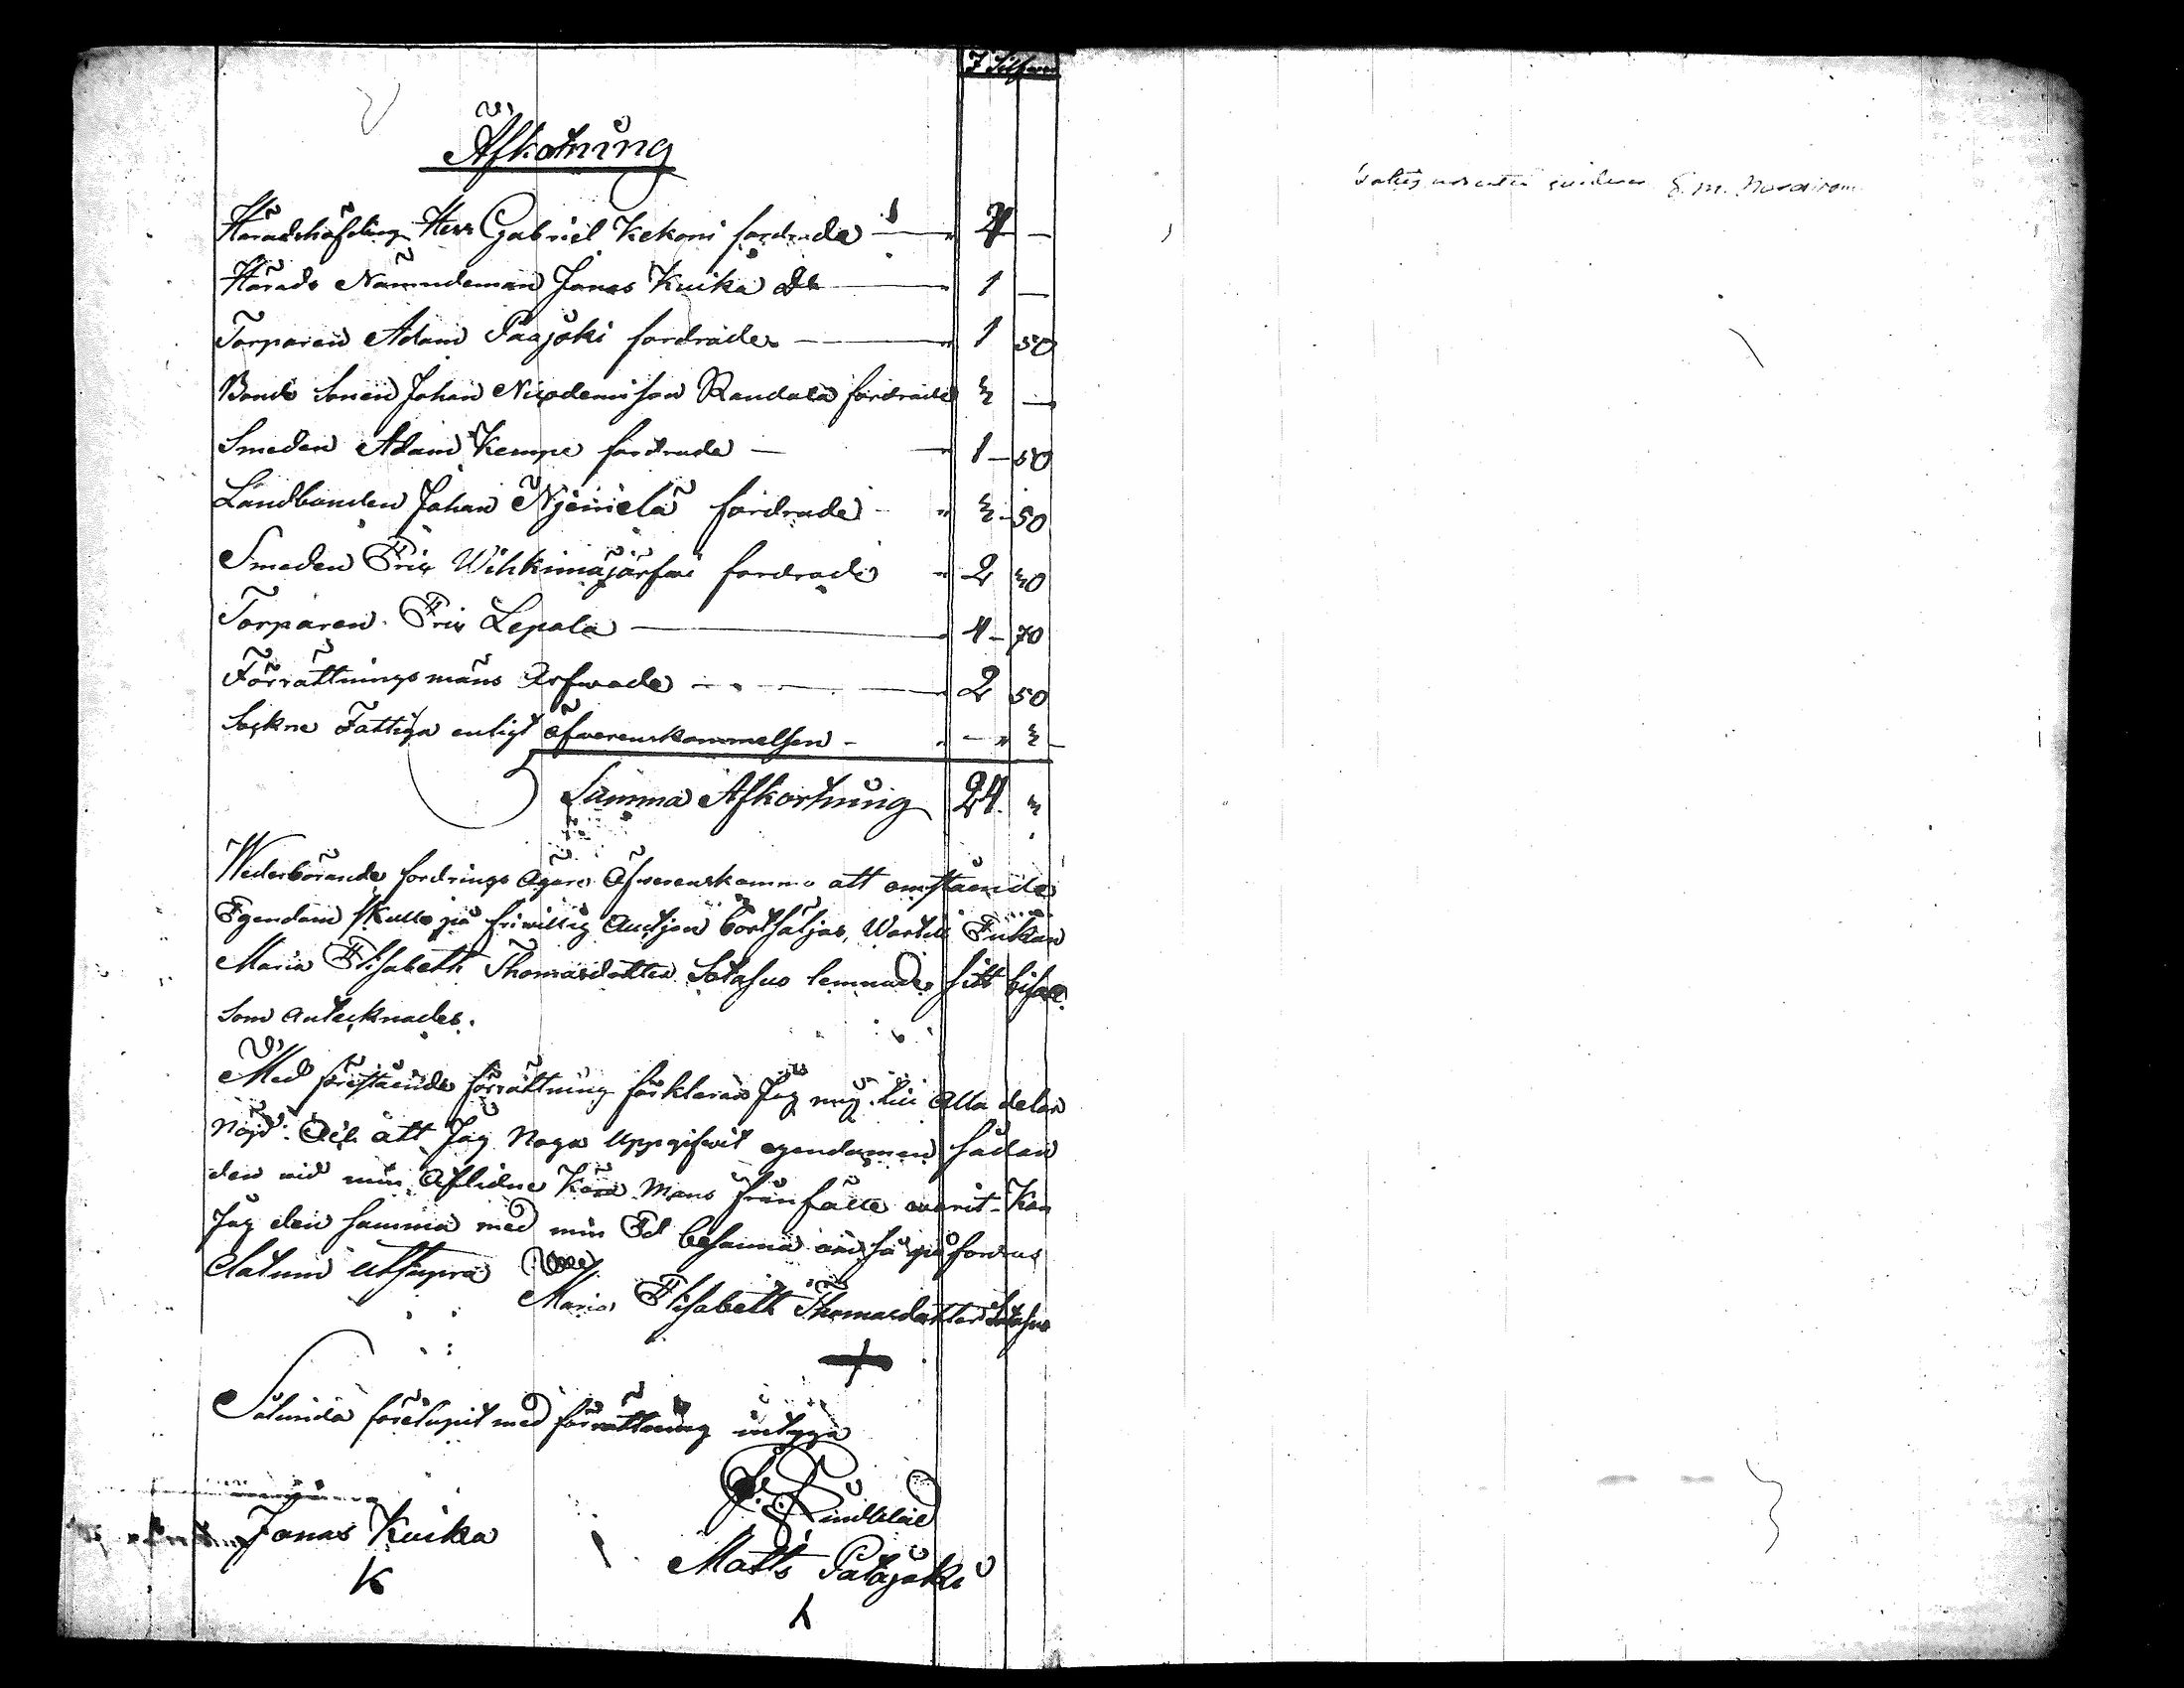 I Silfver
Afkortning
Häradshöfding Herr Gabriel Kekoni fordrade — 4 —
Härads Nämndeman Jonas Kuika do — 1 —
Torparen Adam Paajoki fordrade — 1 50
Bonde Sonen Johan Nicodemison Raudala fordrade 3 —
Smeden Adam Kempe fordrade — 1 — 50
Landbonden Johan Njemelä fordrade 3 — 50
Smeden Eric Wihkimäjärfwi fordrade 2 30
Torparen Eric Lepala — 4 — 70
Förrättnings mäns Arfwode — 2 50
Sockne Fattiga enligt öfwerenskommelsen — — 3 —
Summa Afkortning 24. 3
Wederbörande fordrings Ägare Öfwerenskommo att omstående
Egendom skulle på friwillig Auctjon bortsäljas, Wartill Enkan
Maria Elisabeth Thomasdotter Satasuo lemnade sitt bifall
som antecknades.
Med förestående förrättning förklarar Jag mig till alla delar
nöjd. Och att Jag Noga Uppgifwit egendomen sådan
den wid min Aflidne Kära Mans frånfälle warit. Kan
Jag den samma med min Ed besanna om så påfordras
datum utsupra
Maria Elisabeth Thomasdotter Satasuo
Sålunda förelupit med förrättning intyga
Lindblad
Jonas Kuika
K
Matts Patajoki
E. M. Nordstrom